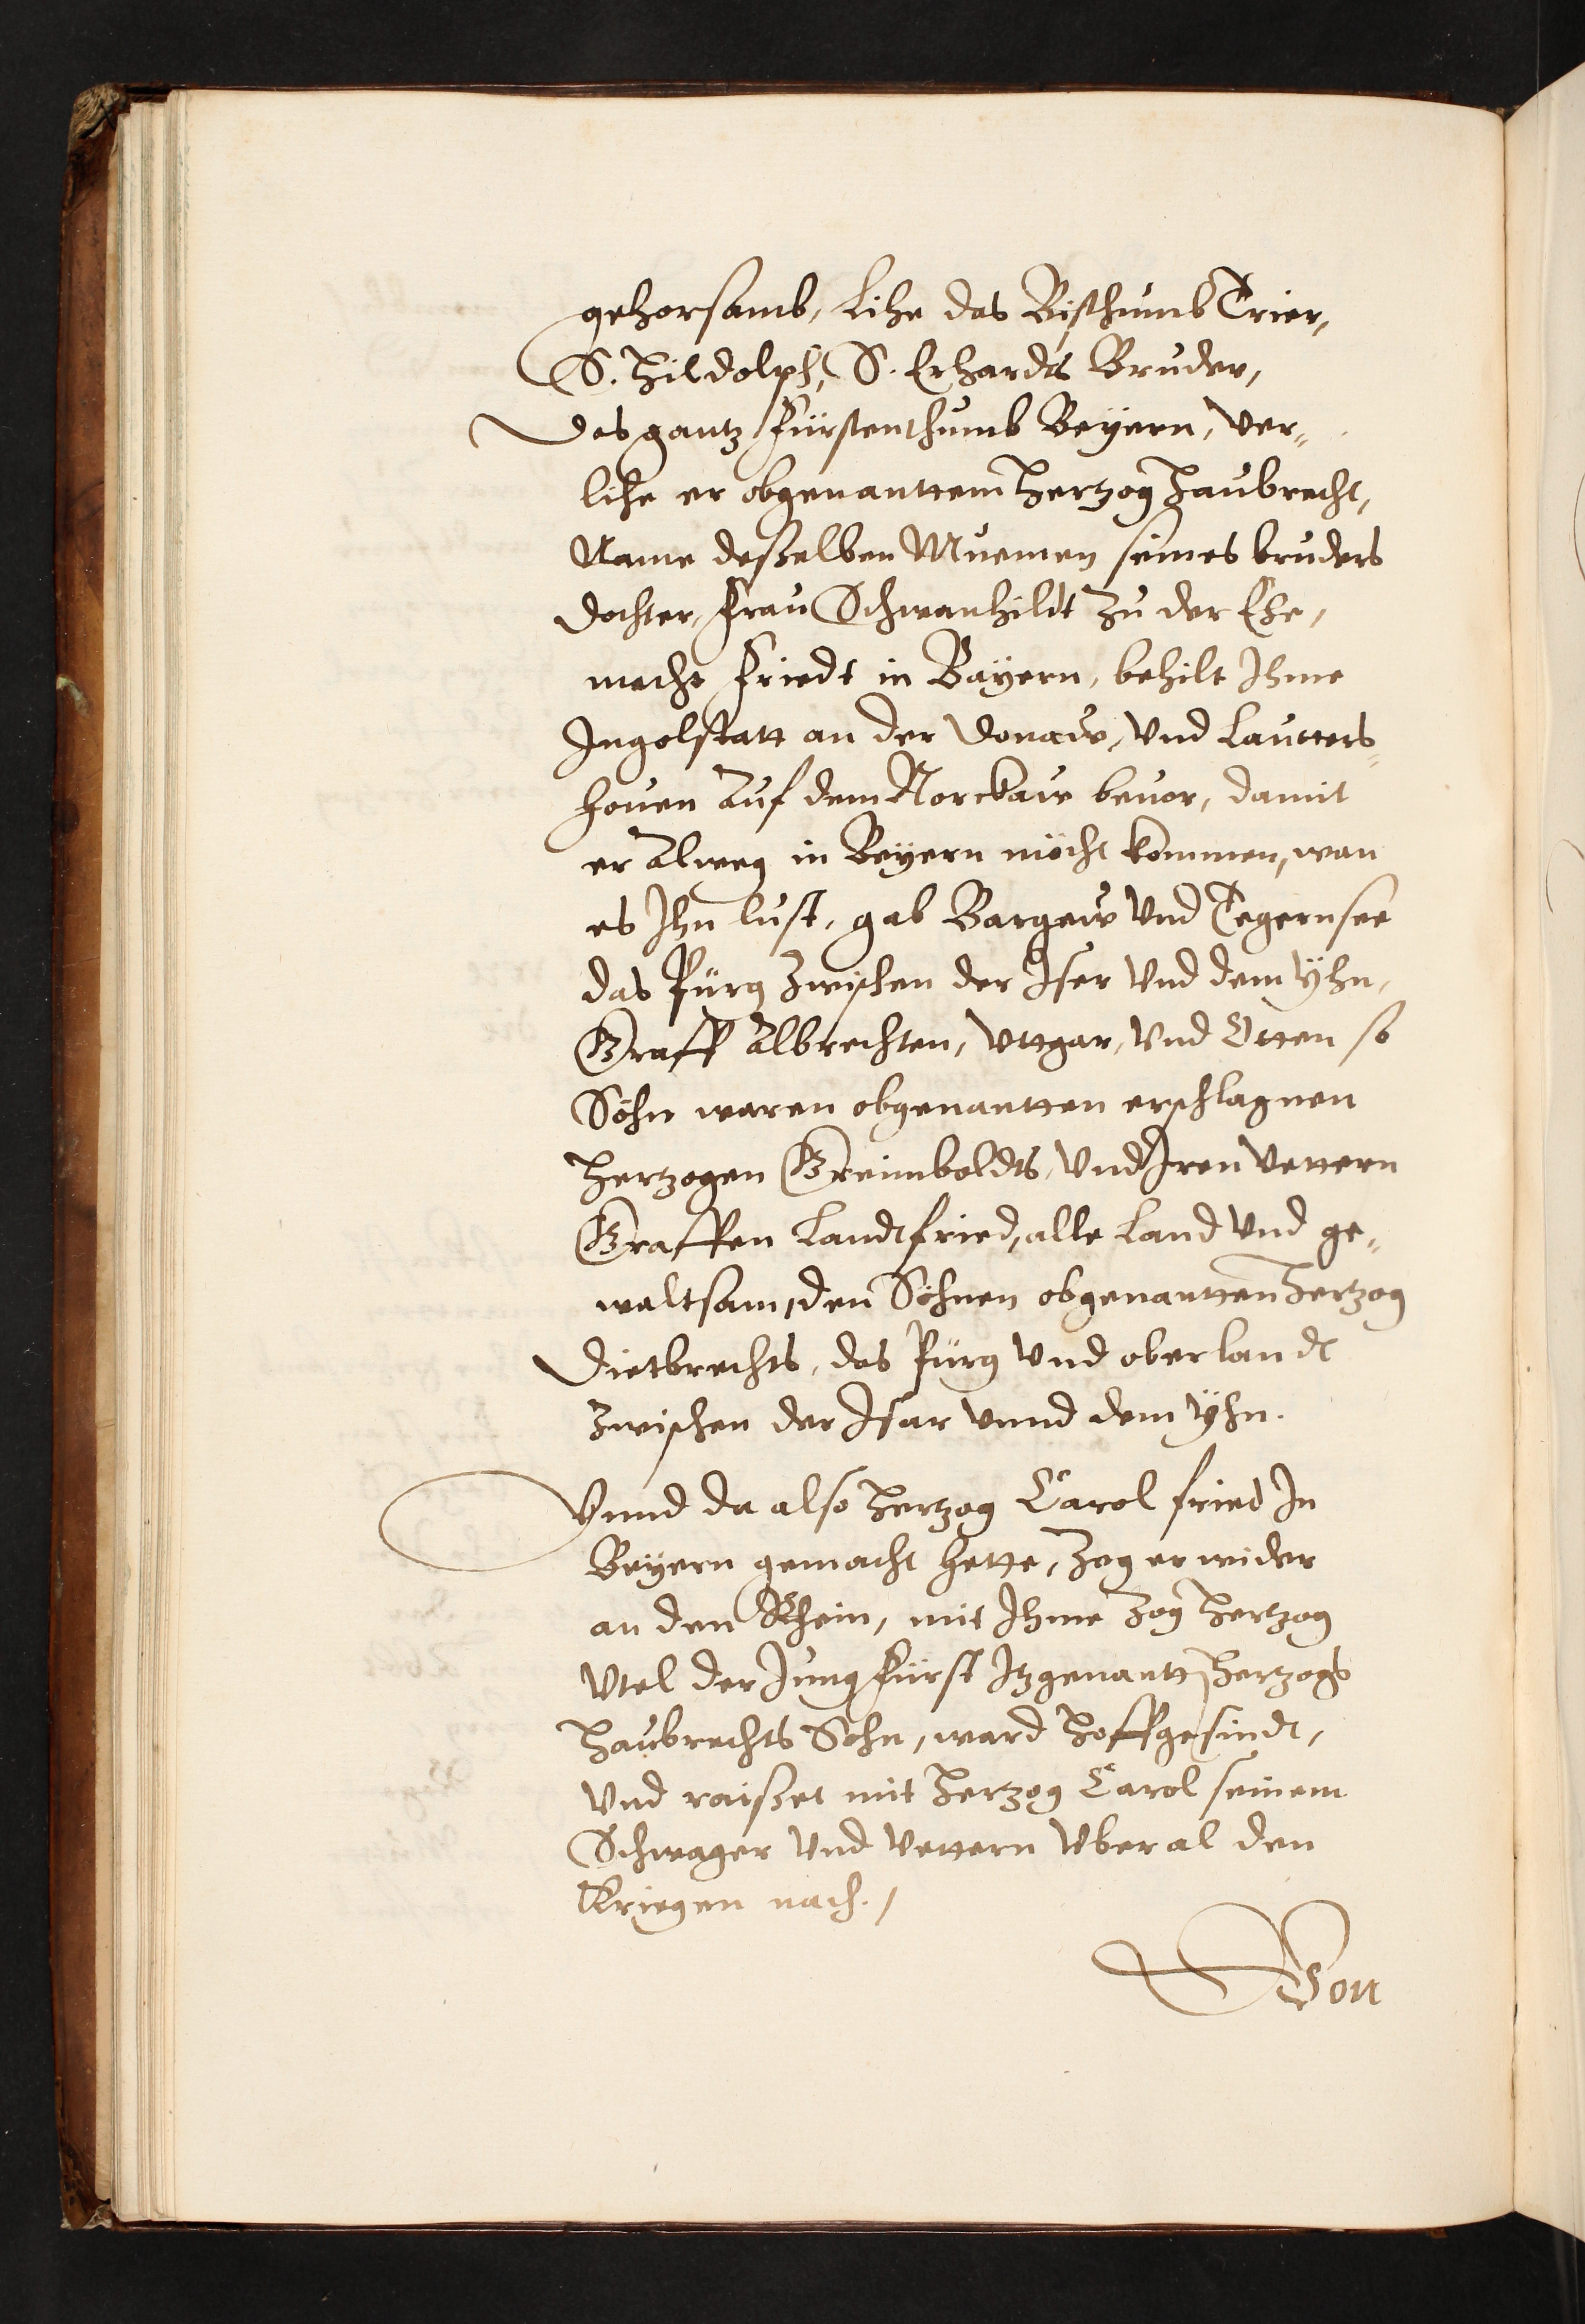 gehorsamb, Lihe das Bisthumb Trier,
S. Hildolph, S. Erhardts Bruder,
Das gantz Fürstenthumb Beÿern, ver-
lihe er obgenanttem Hertzog Haubrecht,
Name deßelben Muemen seines bruders
dochter, Frau Schwanhildt zu der Ehe,
macht Friedt in Baÿern, behilt Ihme
Ingolstatt an der Donaw, Vnd Lautters-
houen Auf dem Norckaw beuor, damit
er Alweg in Beÿern möcht kommen, wan
es Ihn lust, gab Bargew Vnd Tegernsee
das Pürg zwischen der Iser Vnd dem ÿhn,
Graff Albrechten, Vttgar, Vnd Otten so
Söhn waren obgenantten erschlagnen
Hertzogen Greimboldts, Vnd Iren Vettern
Graffen Landtfried, alle Land Vnd ge-
waltsam, den Söhnen obgenantten Hertzog
Dietbrechts, das Pürg Vnd oberlandt
zwischen der Isar Vnnd dem ÿhn.
Vnnd da also Hertzog Carol fried In
Beÿern gemacht hette, zog er wider
an den Rhein, mit Ihme zog Hertzog
Vtel der Jung Fürst Itzgenantt Hertzogs
Haubrechts Sohn, ward Hoffgesindt,
Vnd raißet mit Hertzog Carol seinem
Schwager Vnd Vettern Vberal den
Kriegen nach./
Von